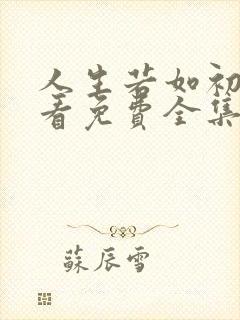 人生若如初
看免費全集
蘇辰雪